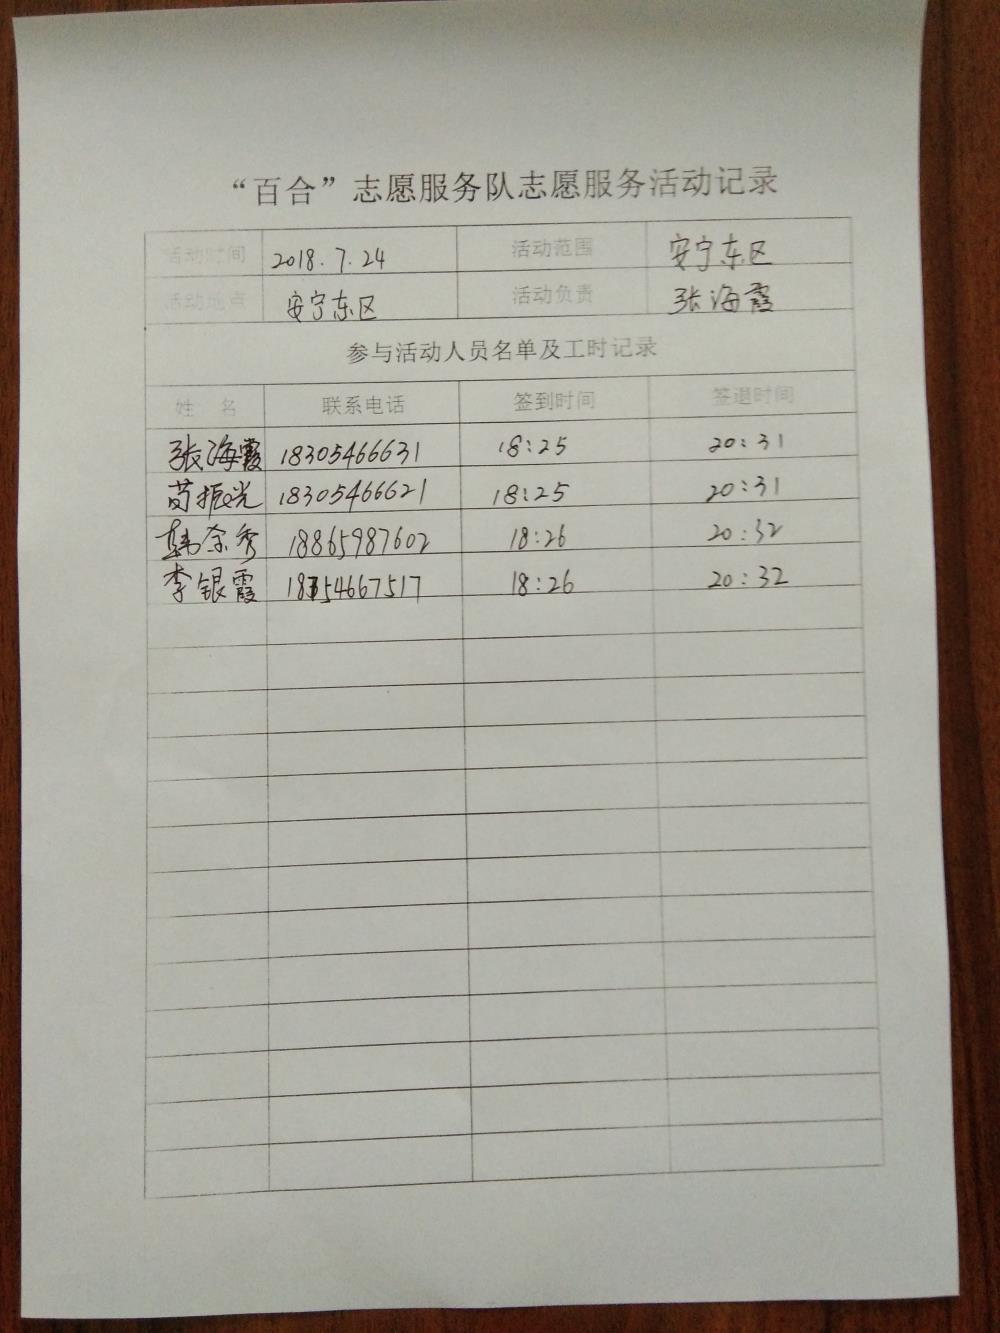 “百合”志愿服务队志愿服务活动记录
活动时间 2018.7.24 活动范围 安宁东区
活动地点 安宁东区 活动负责 张海霞
参与活动人员名单及工时记录
姓 名 联系电话 签到时间 签退时间
张海霞 18305466631 18:25 20:31
苟振光 18305466621 18:25 20:31
韩奈秀 18865987602 18:26 20:32
李银霞 18:26 20:32